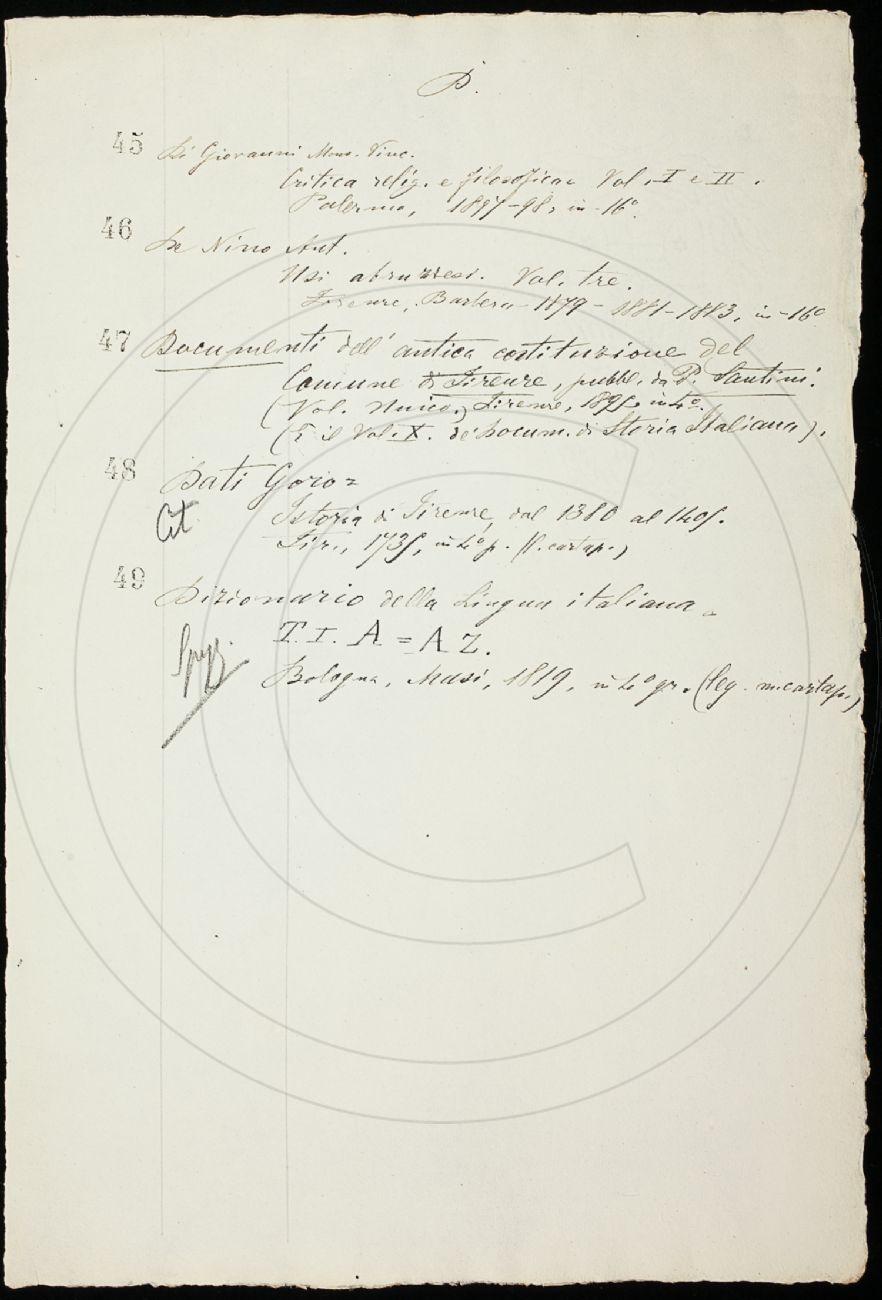 D.
45 Di Giovanni Mons. Vinc.
Critica relig. e filosofica. Vol. I e II.
Palermo, 1897-98, in-16°.
46 De Nino Ant.
Usi abruzzesi. Vol. tre.
Firenze, Barbera 1879-1881-1883, in-16°
47 Documenti dell' antica costituzione del
Comune di Firenze, pubbl. da P. Santini.
(Vol. Unico,) Firenze, 1895, in 4°.
(È il Vol. X. de' Docum. di Storia Italiana).
48 Dati Goro =
Cit
Istoria di Firenze, dal 1380 al 1405.
Fir., 1735, in 4° p. (l. cartap.)
49 Dizionario della Lingua italiana =
T. I. A = AZ.
Bologna, Masi, 1819, in 4° gr. (leg. m. cartap.)